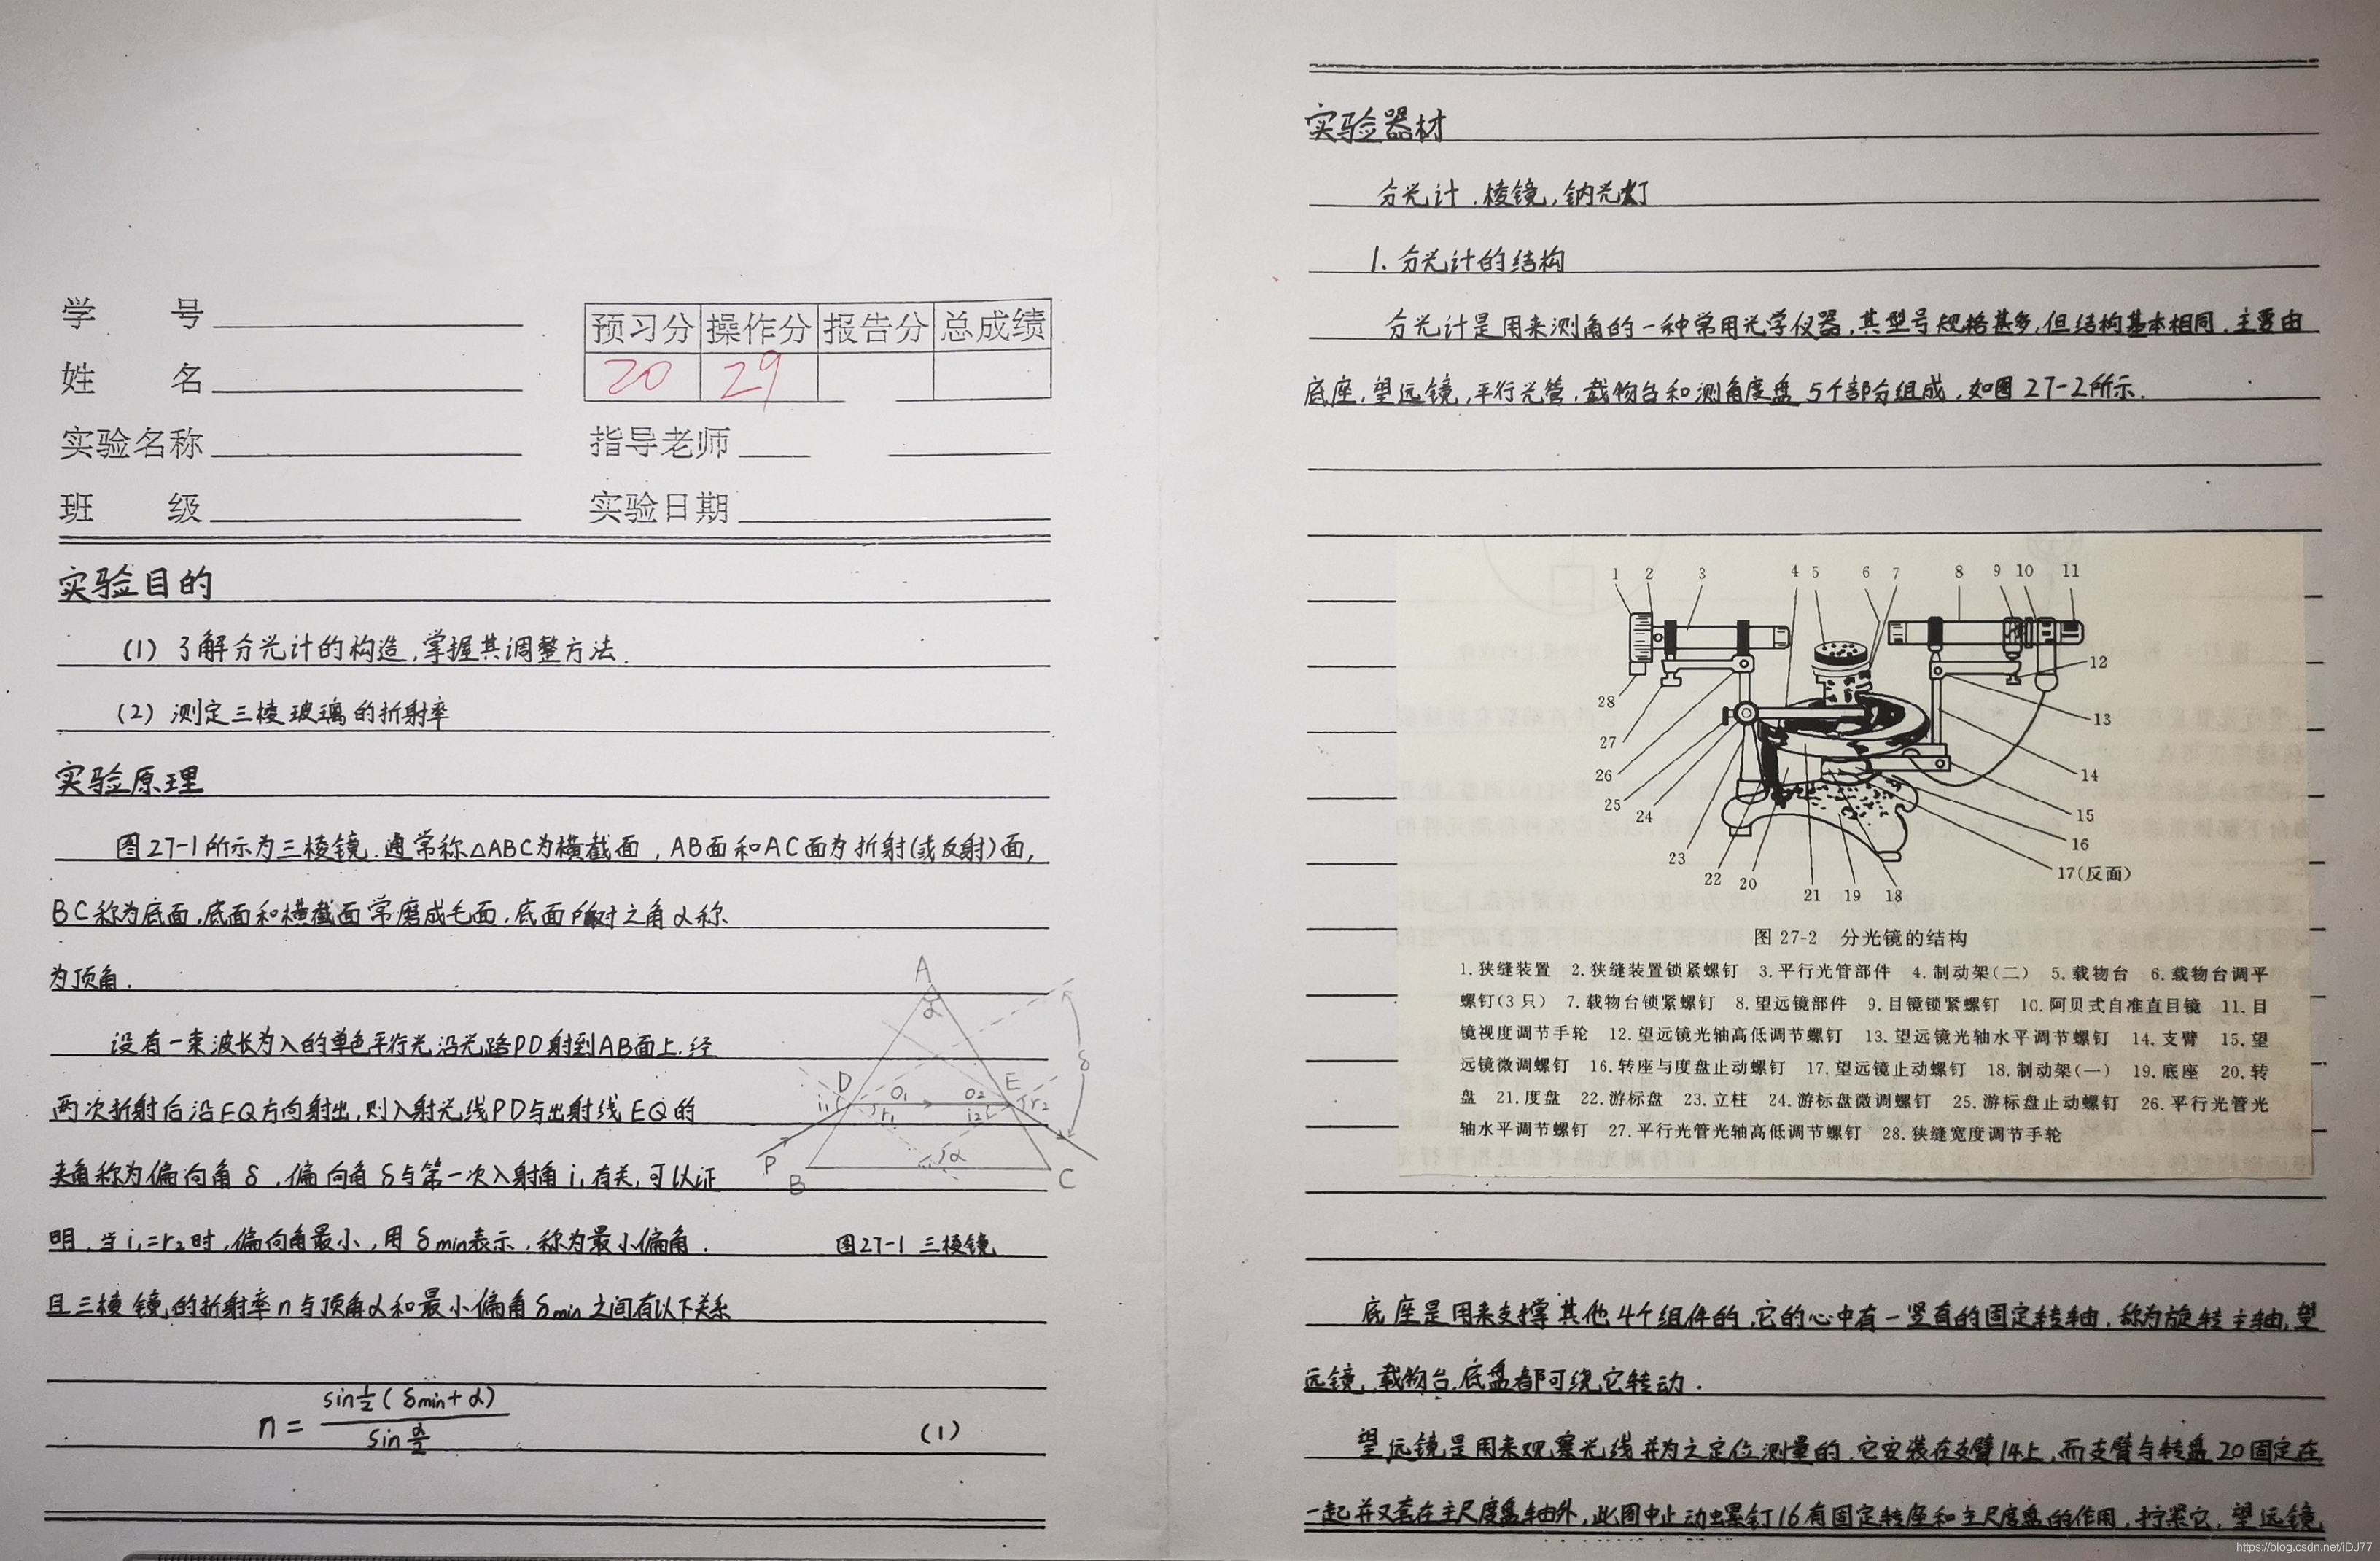 学 号
姓 名
实验名称
班 级
预习分 操作分 报告分 总成绩
20 29
指导老师
实验日期
实验目的
(1) 了解分光计的构造,掌握其调整方法.
(2) 测定三棱玻璃的折射率
实验原理
图27-1所示为三棱镜.通常称△ABC为横截面,AB面和AC面为折射(或反射)面,
BC称为底面,底面和横截面常磨成毛面,底面所对之角α称
为顶角.
设有一束波长为λ的单色平行光沿光路PD射到AB面上.经
两次折射后沿EQ方向射出,则入射光线PD与出射线EQ的
夹角称为偏向角δ,偏向角δ与第一次入射角i₁有关,可以证
明,当i₁=r₂时,偏向角最小,用δmin表示,称为最小偏角.
且三棱镜的折射率n与顶角α和最小偏角δmin之间有以下关系
n = sin½(δmin+α) / sin α/2 (1)
A
α
D
i₁
r₁
O₁
O₂
i₂
E
r₂
δ
P
B
α
C
图27-1 三棱镜
实验器材
分光计.棱镜,钠光灯
1. 分光计的结构
分光计是用来测角的一种常用光学仪器,其型号规格甚多,但结构基本相同.主要由
底座,望远镜,平行光管,载物台和测角度盘5个部分组成,如图27-2所示.
1 2 3 4 5 6 7 8 9 10 11
12
13
14
15
16
17(反面)
18
19
21
20
22
23
24
25
26
27
28
图 27-2 分光镜的结构
1.狭缝装置 2.狭缝装置锁紧螺钉 3.平行光管部件 4.制动架(二) 5.载物台 6.载物台调平
螺钉(3只) 7.载物台锁紧螺钉 8.望远镜部件 9.目镜锁紧螺钉 10.阿贝式自准直目镜 11.目
镜视度调节手轮 12.望远镜光轴高低调节螺钉 13.望远镜光轴水平调节螺钉 14.支臂 15.望
远镜微调螺钉 16.转座与度盘止动螺钉 17.望远镜止动螺钉 18.制动架(一) 19.底座 20.转
盘 21.度盘 22.游标盘 23.立柱 24.游标盘微调螺钉 25.游标盘止动螺钉 26.平行光管光
轴水平调节螺钉 27.平行光管光轴高低调节螺钉 28.狭缝宽度调节手轮
底座是用来支撑其他4个组件的,它的心中有一竖直的固定转轴,称为旋转主轴,望
远镜,载物台,底盘都可绕它转动.
望远镜是用来观察光线并为之定位测量的,它安装在支臂14上,而支臂与转盘20固定在
一起并又套在主尺度盘轴外,此图中止动螺钉16有固定转座和主尺度盘的作用,拧紧它,望远镜
https://blog.csdn.net/iDJ77